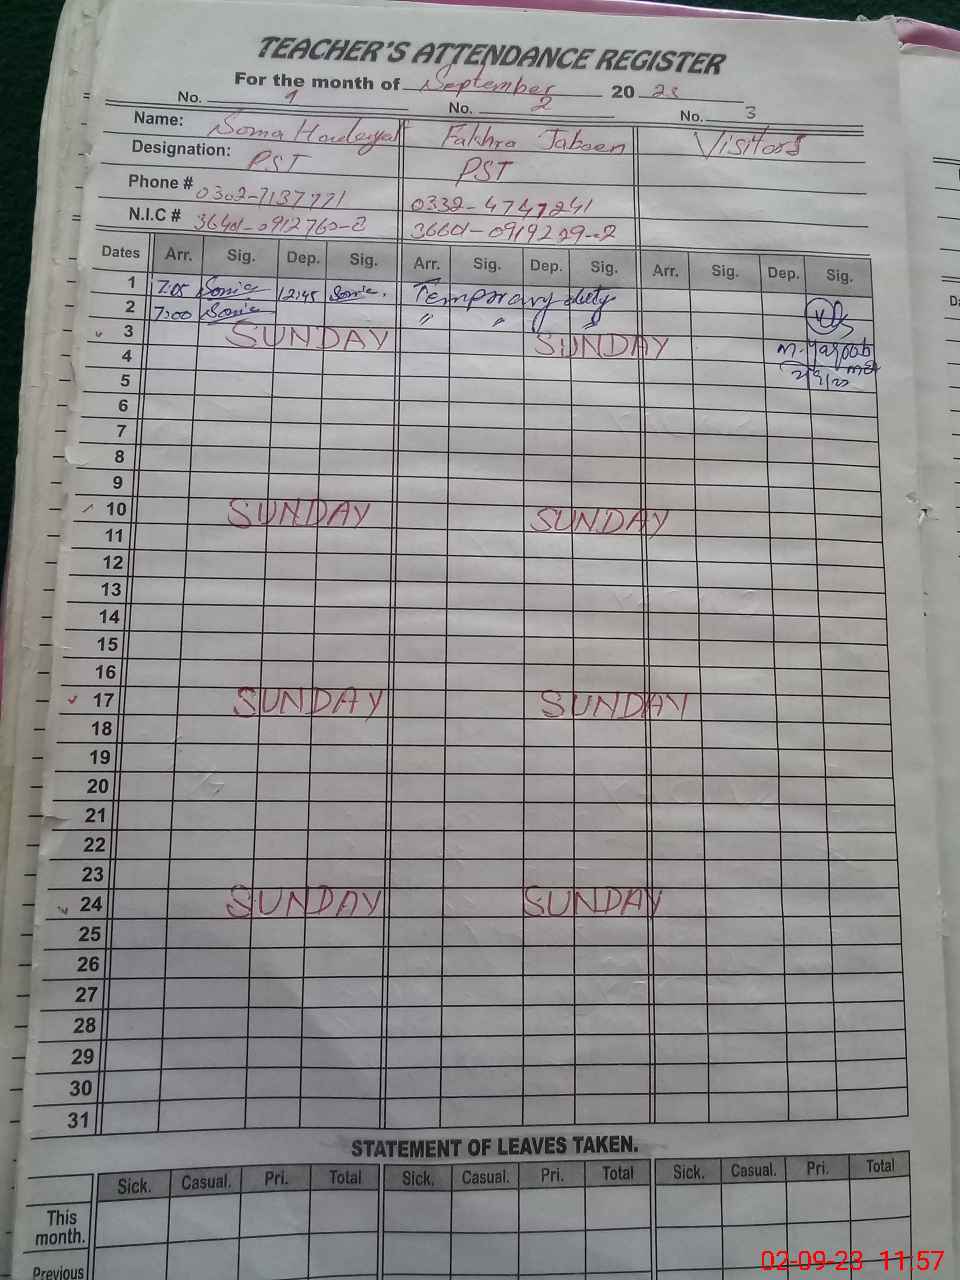 TEACHER'S ATTENDANCE REGISTER
For the month of September 20 23
No. 1 No. 2 No. 3
Name: Fakhra Jabeen Visitors
Designation: PST PST
Phone # 0302-7137771 0332-4747241
N.I.C #
Dates Arr. Sig. Dep. Sig. Arr. Sig. Dep. Sig. Arr. Sig. Dep. Sig.
1 7.05 Sonia 12:45 Sonia. Temporary duty
2 7:00 Sonia " " "
3 SUNDAY SUNDAY
4 M. Yaqoob
5
6
7
8
9
10 SUNDAY SUNDAY
11
12
13
14
15
16
17 SUNDAY SUNDAY
18
19
20
21
22
23
24 SUNDAY SUNDAY
25
26
27
28
29
30
31
STATEMENT OF LEAVES TAKEN.
Sick. Casual. Pri. Total Sick. Casual. Pri. Total Sick. Casual. Pri. Total
This
month.
Previous
02-09-23 11:57